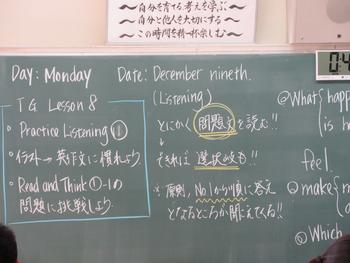 ～自分を育てる考えを学ぶ～
～自分と他人を大切にする～
～この時間を精一杯楽しむ～
0:4
Day: Monday Date: December nineth.
TG Lesson 8
• Practice Listening ⑪
• イラスト→英作文に慣れよう.
• Read and Think ①-1の
問題に挑戦しよう.
(Listening)
とにかく問題文を読む!!
↓
できれば選択肢も!!
※ 原則, No.1から順に答え
となるところが聞こえてくる!!
@What
is ha
feel.
make
Which